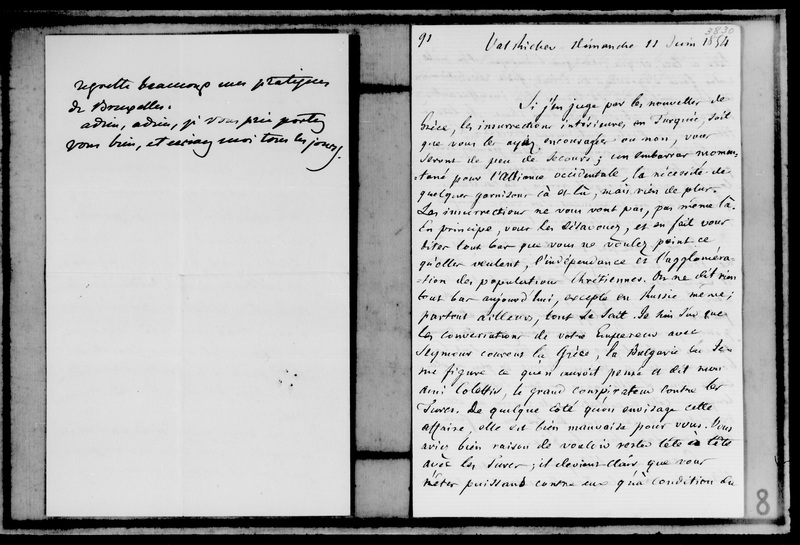 regrette beaucoup mes pratiques
de Bruxelles.
adieu, adieu, je vous prie portez
vous bien, et écrivez moi tous les jours.
3830
91 Val Richer Dimanche 11 Juin 1854
Si j'en juge par les nouvelles de
Grèce, les insurrections intérieures, en Turquie, soit
que vous les ayez encouragées ou non, vous
seront de peu de secours ; un embarras momen
tané pour l'alliance occidentale, la nécessité de
quelques garnisons çà et là, mais rien de plus.
Les insurrections ne vous vont pas, pas même là.
En principe, vous les désavouez, et en fait vous
dites tout bas que vous ne voulez point ce
qu'elles veulent, l'indépendance et l'aggloméra
-tion des populations chrétiennes. On ne dit rien
tout bas aujourd'hui, excepté en Russie même ;
partout ailleurs, tout se sait. Je suis sûr que
les conversations de votre Empereur avec
Seymour courent la Grèce, la Bulgarie &a Je
me figure ce qu'en auroit pensé et dit mon
ami Colettis, le grand conspirateur contre les
Turcs. De quelque côté qu'on envisage cette
affaire, elle est bien mauvaise pour vous. Vous
aviez bien raison de vouloir rester tête à tête
avec les Turcs ; il devient clair que vous
n'êtes puissans contre eux qu'à condition du
8